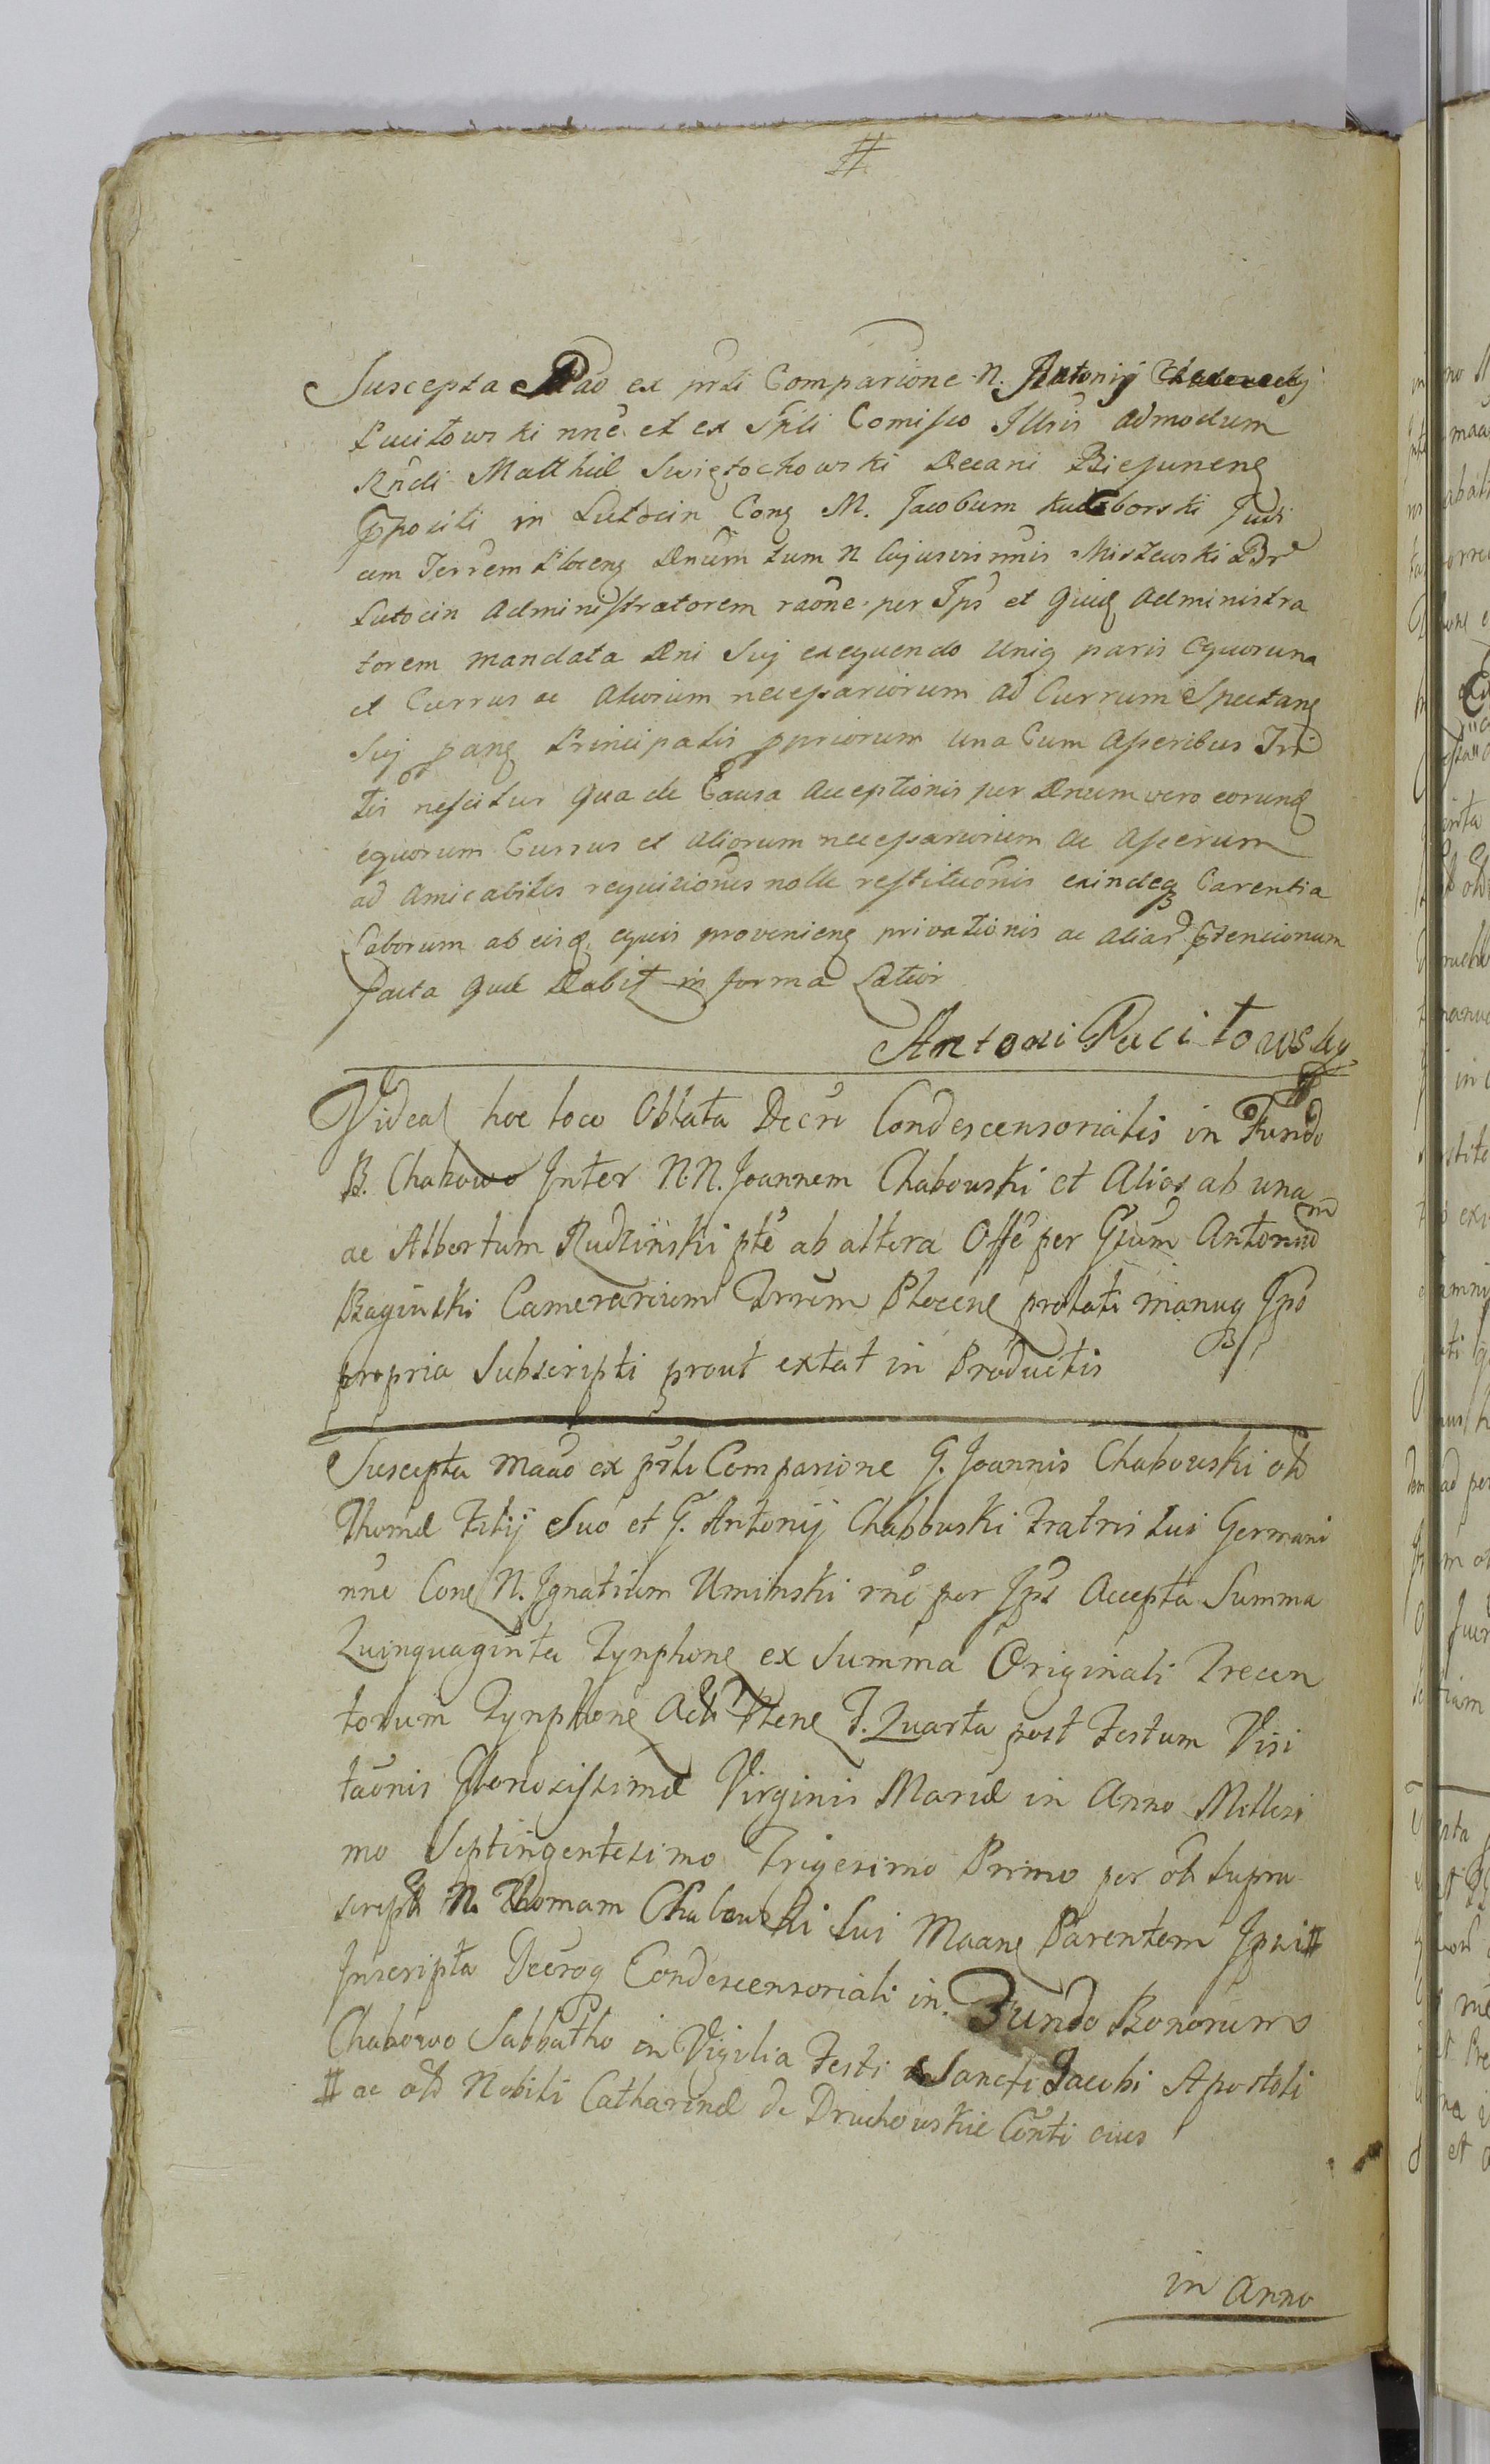 #
Suscepta Pao ex prti Comparione N. Antonij
Pucitowski nne et ex Spli Comisso Illris admodum
Rndi Matthiæ Swiętochowski Decani Biezunens
Ppositi in Lutocin Cons M. Jacobum Kuczborski Judi
cem Terrem Plocens Dnum tum N Cujusvis nnis Miszewski Br
Lutocin Administratorem raone per Ips et quid Administra
torem mandata Dni Suj exequendo Unig paris Equorum
et Currus ac aliorum necessariorum ad Currum Spectans
Suj pans Principalis ppriorum una Cum Asseribus Irri
tis nescitur qua de Causa acceptionis per Dnum vero eorund
equorum Currus et aliorum necessariorum ac Asserum
ad amicabiles requisiones nolle restituonis exindeq Carentia
Laborum ab eisd equis proveniens privationis ac aliar Ptensionum
facta que Dabit in forma Latior
Antoni Pucitowsky
Videat hoc loco Oblata Decri Condescensorialis in Fundo
B. Chabowo Inter N.N. Joannem Chabowski et Alios ab una
ac Albertum Rudzinski pte ab altera Offe per Gsum Antonium
Baginski Camerarium Trrum Plocens prolati manuq Ips
propria Subscripti prout extat in Productis
Suscepta Maao ex prti Comparione G. Joannis Chabowski olt
Thomæ Filij Suo et G. Antonij Chabowski Fratris sui Germani
nne Cons N. Ignatium Uminski rne per Ips Accepta Summa
Quinquaginta Tynphons ex Summa Originali Trecen
torum Tynphons Acti Plens F. Quarta post Festum Visi
taonis Gloriosissimæ Virginis Mariæ in Anno Millesi
mo Septingentesimo Trigesimo Primo per olt supra
script N. Thomam Chabowski sui Maans Parentem Ipsi #
Inscripta Decroq Condescensoriali in Fundo Bonorum
Chabowo Sabbatho in Vigilia Festi Sancti Jacobi Apostoli
# ac olt Nobili Catharinæ de Druchowskie Conti eius
in Anno